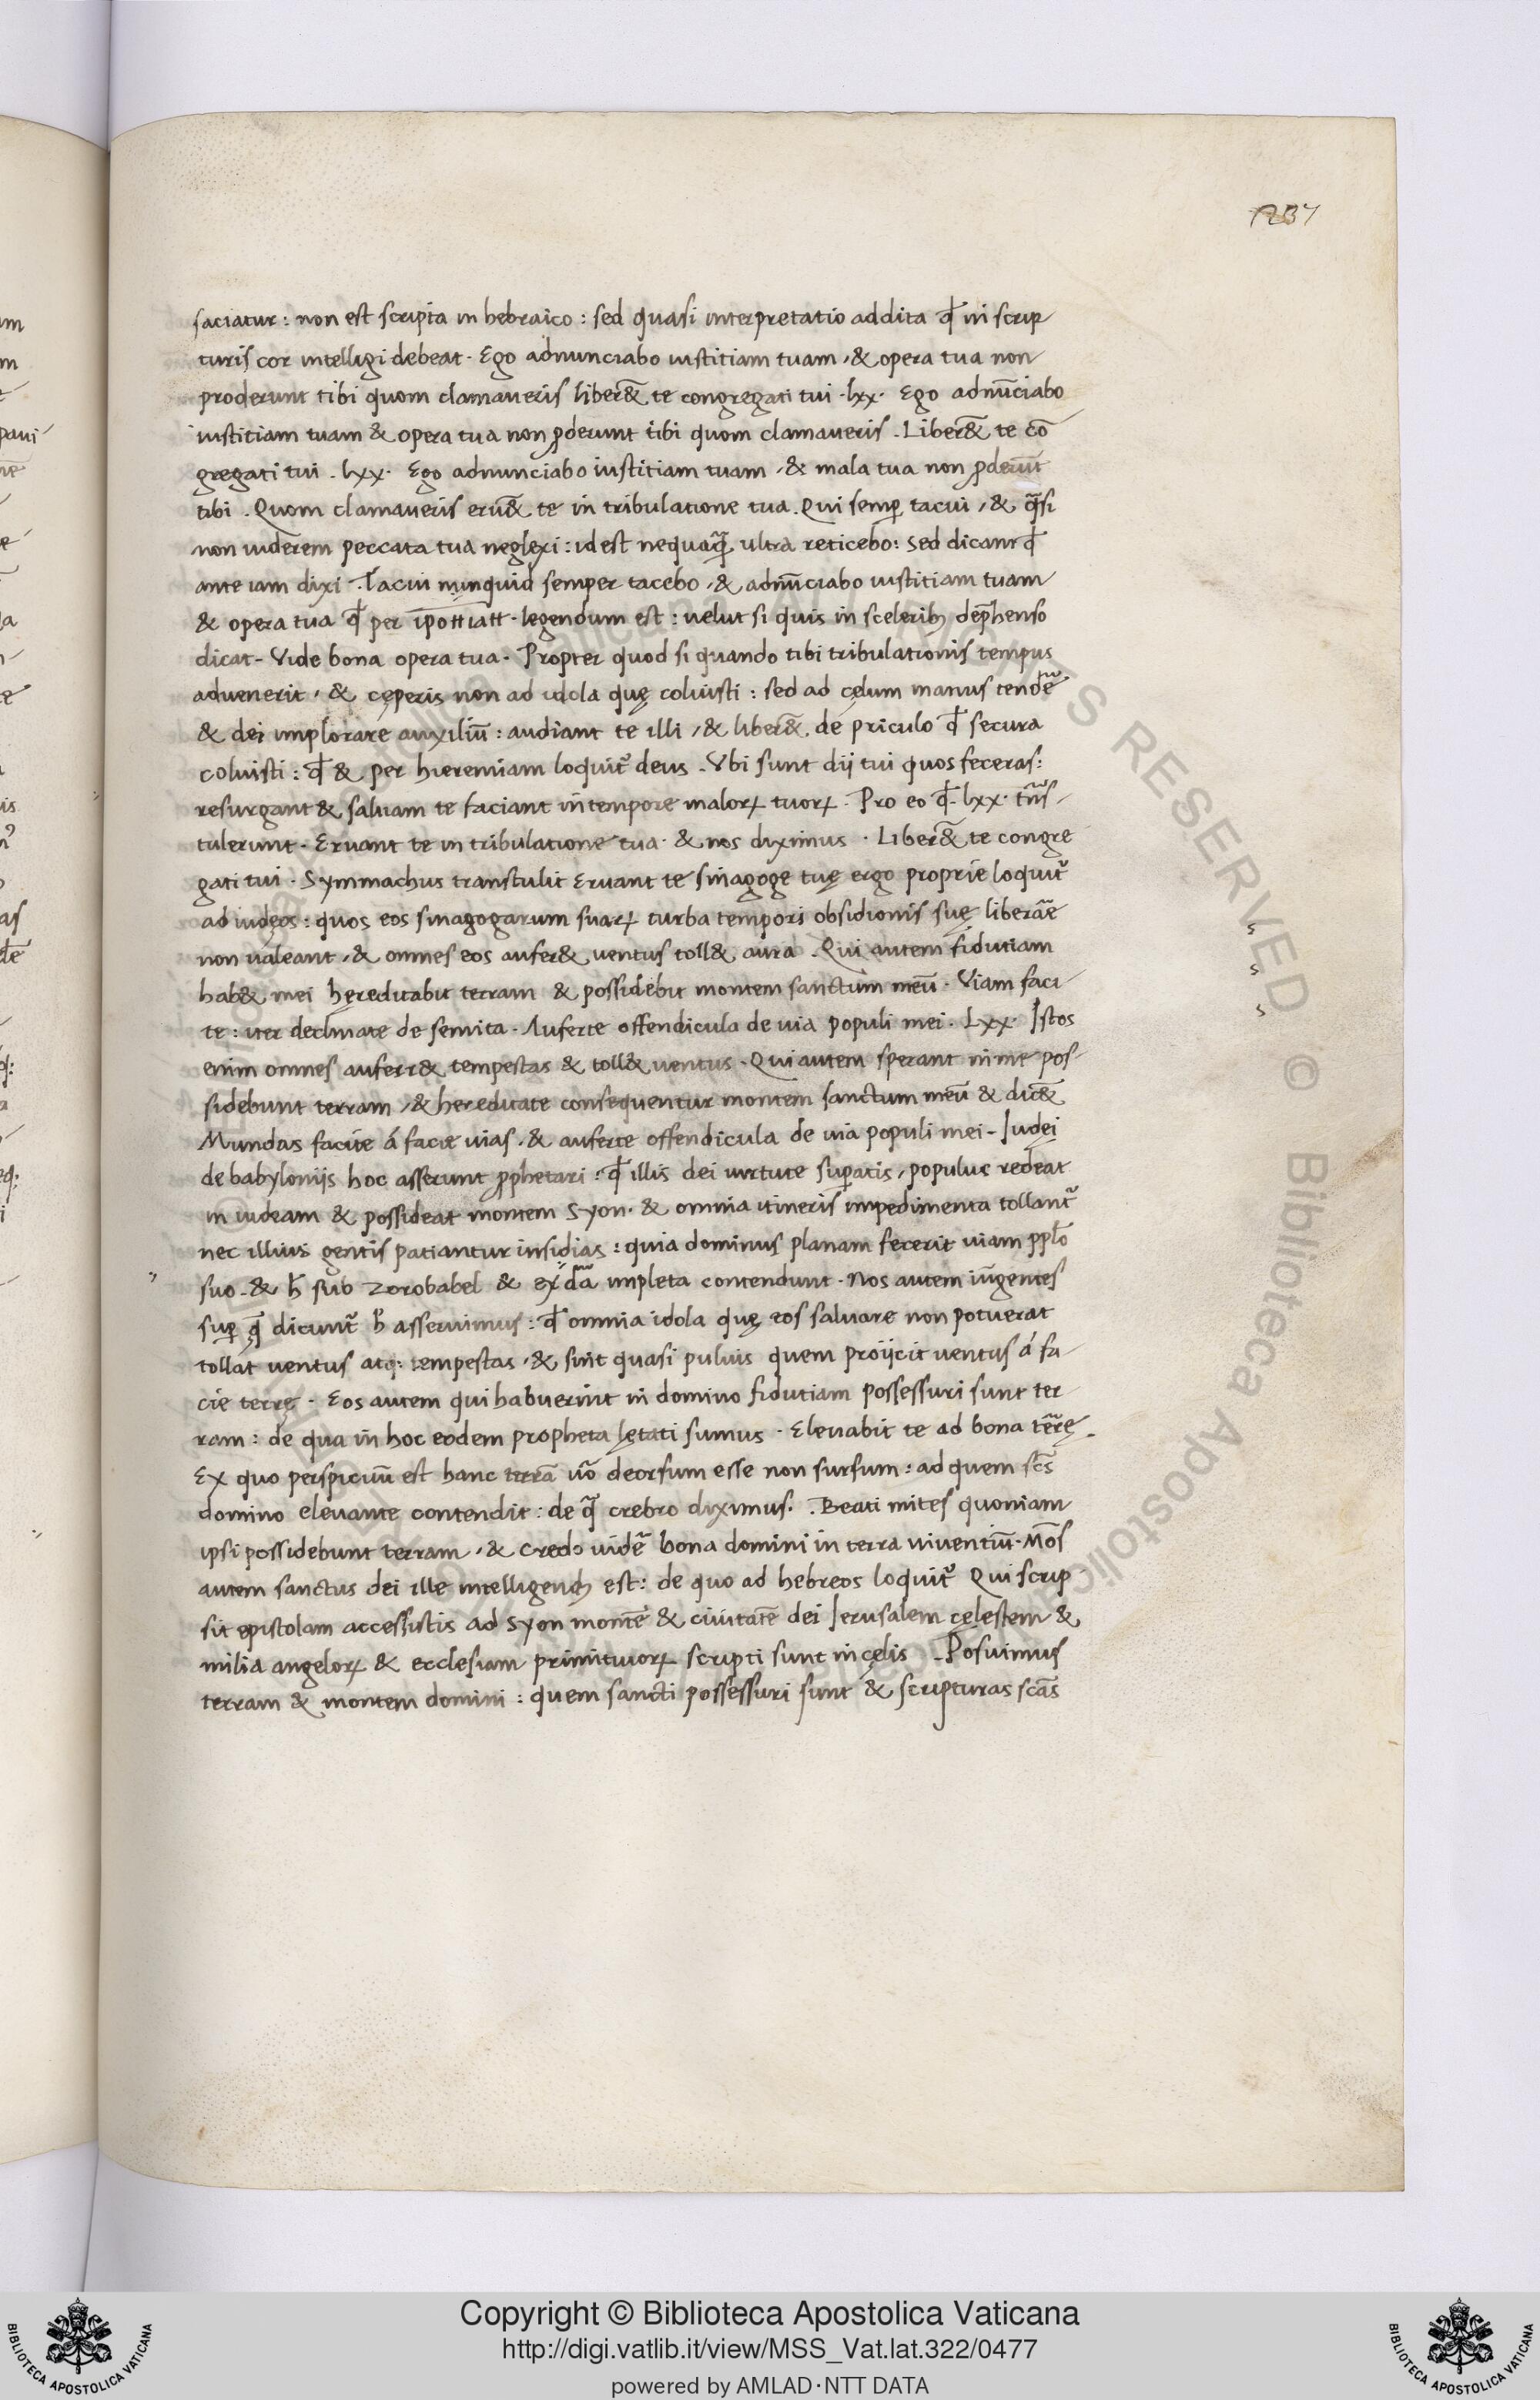 237
saciatur: non est scripta in hebraico: sed quasi interpretatio addita qđ in scrip
turis cor intelligi debeat. Ego adnunciabo iustitiam tuam, & opera tua non
proderunt tibi quom clamaueris liber&̄ te congregati tui .lxx. Ego adnūciabo
iustitiam tuam & opera tua non ꝓderunt tibi quom clamaueris. Liber&̄ te cō
gregati tui .lxx. Ego adnunciabo iustitiam tuam, & mala tua non ꝓderūt
tibi. Quom clamaueris eru&̄ te in tribulatione tua. Qui semꝑ tacui, & q̄si
non uiderem peccata tua neglexi: id est nequaq̄ ultra reticebo: sed dicam qđ
ante iam dixi. Tacui nunquid semper tacebo, & adnūciabo iustitiam tuam
& opera tua qđ per legendum est: uelut si quis in sceleribꝫ dep̄henso
dicat. Vide bona opera tua. Propter quod si quando tibi tribulationis tempus
aduenerit, & cęperis non ad idola quę coluisti: sed ad cęlum manus tendē
& dei implorare auxiliū: audiant te illi, & liber&̄ de ꝑiculo qđ secura
coluisti: qđ & per hieremiam loquit̄ deus. Vbi sunt dij tui quos feceras:
resurgant & saluam te faciant in tempore maloꝝ tuoꝝ. Pro eo qđ. lxx. trñs
tulerunt. Eruant te in tribulatione tua. & nos diximus. Liber&̄ te congre
gati tui. Symmachus transtulit Eruant te sinagoge tuę ergo proprie loquit̄
ad iudęos: quos eos sinagogarum suaꝝ turba tempori obsidionis suę liberāe
non ualeant, & omnes eos aufer& uentus toll& aura. Qui autem fidutiam
hab& mei hęreditabit terram & possidebit montem sanctum meū. Viam faci
te: iter declinate de semita. Auferte offendicula de uia populi mei. Lxx. Istos
enim omnes auferr& tempestas & toll& uentus. Qui autem sperant in me pos
sidebunt terram, & hereditate consequentur montem sanctum meū & dic&̄
Mundas facite á facie uias, & auferte offendicula de uia populi mei. Iudęi
de babylonijs hoc asserunt ꝓphetari: qđ illis dei uirtute suꝑatis, populus redeat
in iudeam & possideat montem Syon. & omnia itineris impedimenta tollant̄
nec illius gentis patiantur insidias: quia dominus planam fecerit uiam ppl̄o
suo. & ħ sub zorobabel & exdrā impleta contendunt. Nos autem iūgentes
suꝑ q̄ dicunt̄ ħ asseruimus: qđ omnia idola quę eos saluare non potuerat
tollat uentus atqꝫ tempestas, & sint quasi puluis quem proijcit uentus á fa
cie terrę. Eos autem qui habuerint in domino fidutiam possessuri sunt ter
ram: de qua in hoc eodem propheta lętati sumus. Eleuabit te ad bona tērę.
Ex quo perspicuū est hanc terrā nō deorsum esse non sursum: ad quem sc̄s
domino eleuante contendit: de q̄ crebro diximus. Beati mites quoniam
ipsi possidebunt terram, & credo uidē bona domini in terra uiuentiū. Mōs
autem sanctus dei ille intelligendꝰ est: de quo ad hebreos loquit̄ Qui scrip
sit epistolam accessistis ad Syon montē & ciuitatē dei Ierusalem cęlestem &
milia angeloꝝ & ecclesiam primitiuoꝝ scripti sunt in cęlis. Posuimus
terram & montem domini: quem sancti possessuri sunt & scripturas scās
Copyright © Biblioteca Apostolica Vaticana
http://digi.vatlib.it/view/MSS_Vat.lat.322/0477
powered by AMLAD·NTT DATA